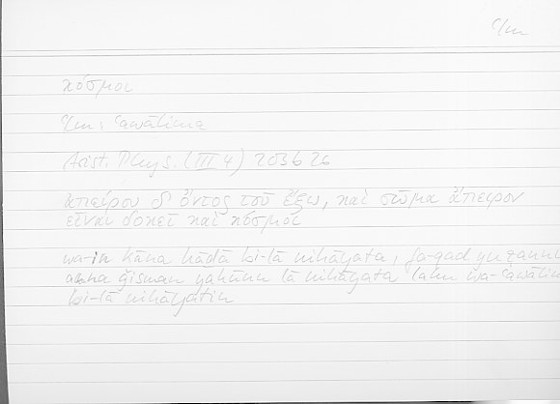 ʿlm
κόσμοι
ʿlm : ʿawālima
Arist. Phys. (III 4) 203b26
ἀπείρου δ' ὄντος τοῦ ἔξω, καὶ σῶμα ἄπειρον
εἶναι δοκεῖ καὶ κόσμοι
wa-in kāna hāḏā bi-lā nihāyata, fa-qad yuẓannu
anna ǧisman yakūnu lā nihāyata lahu wa-ʿawālima
bi-lā nihāyatin